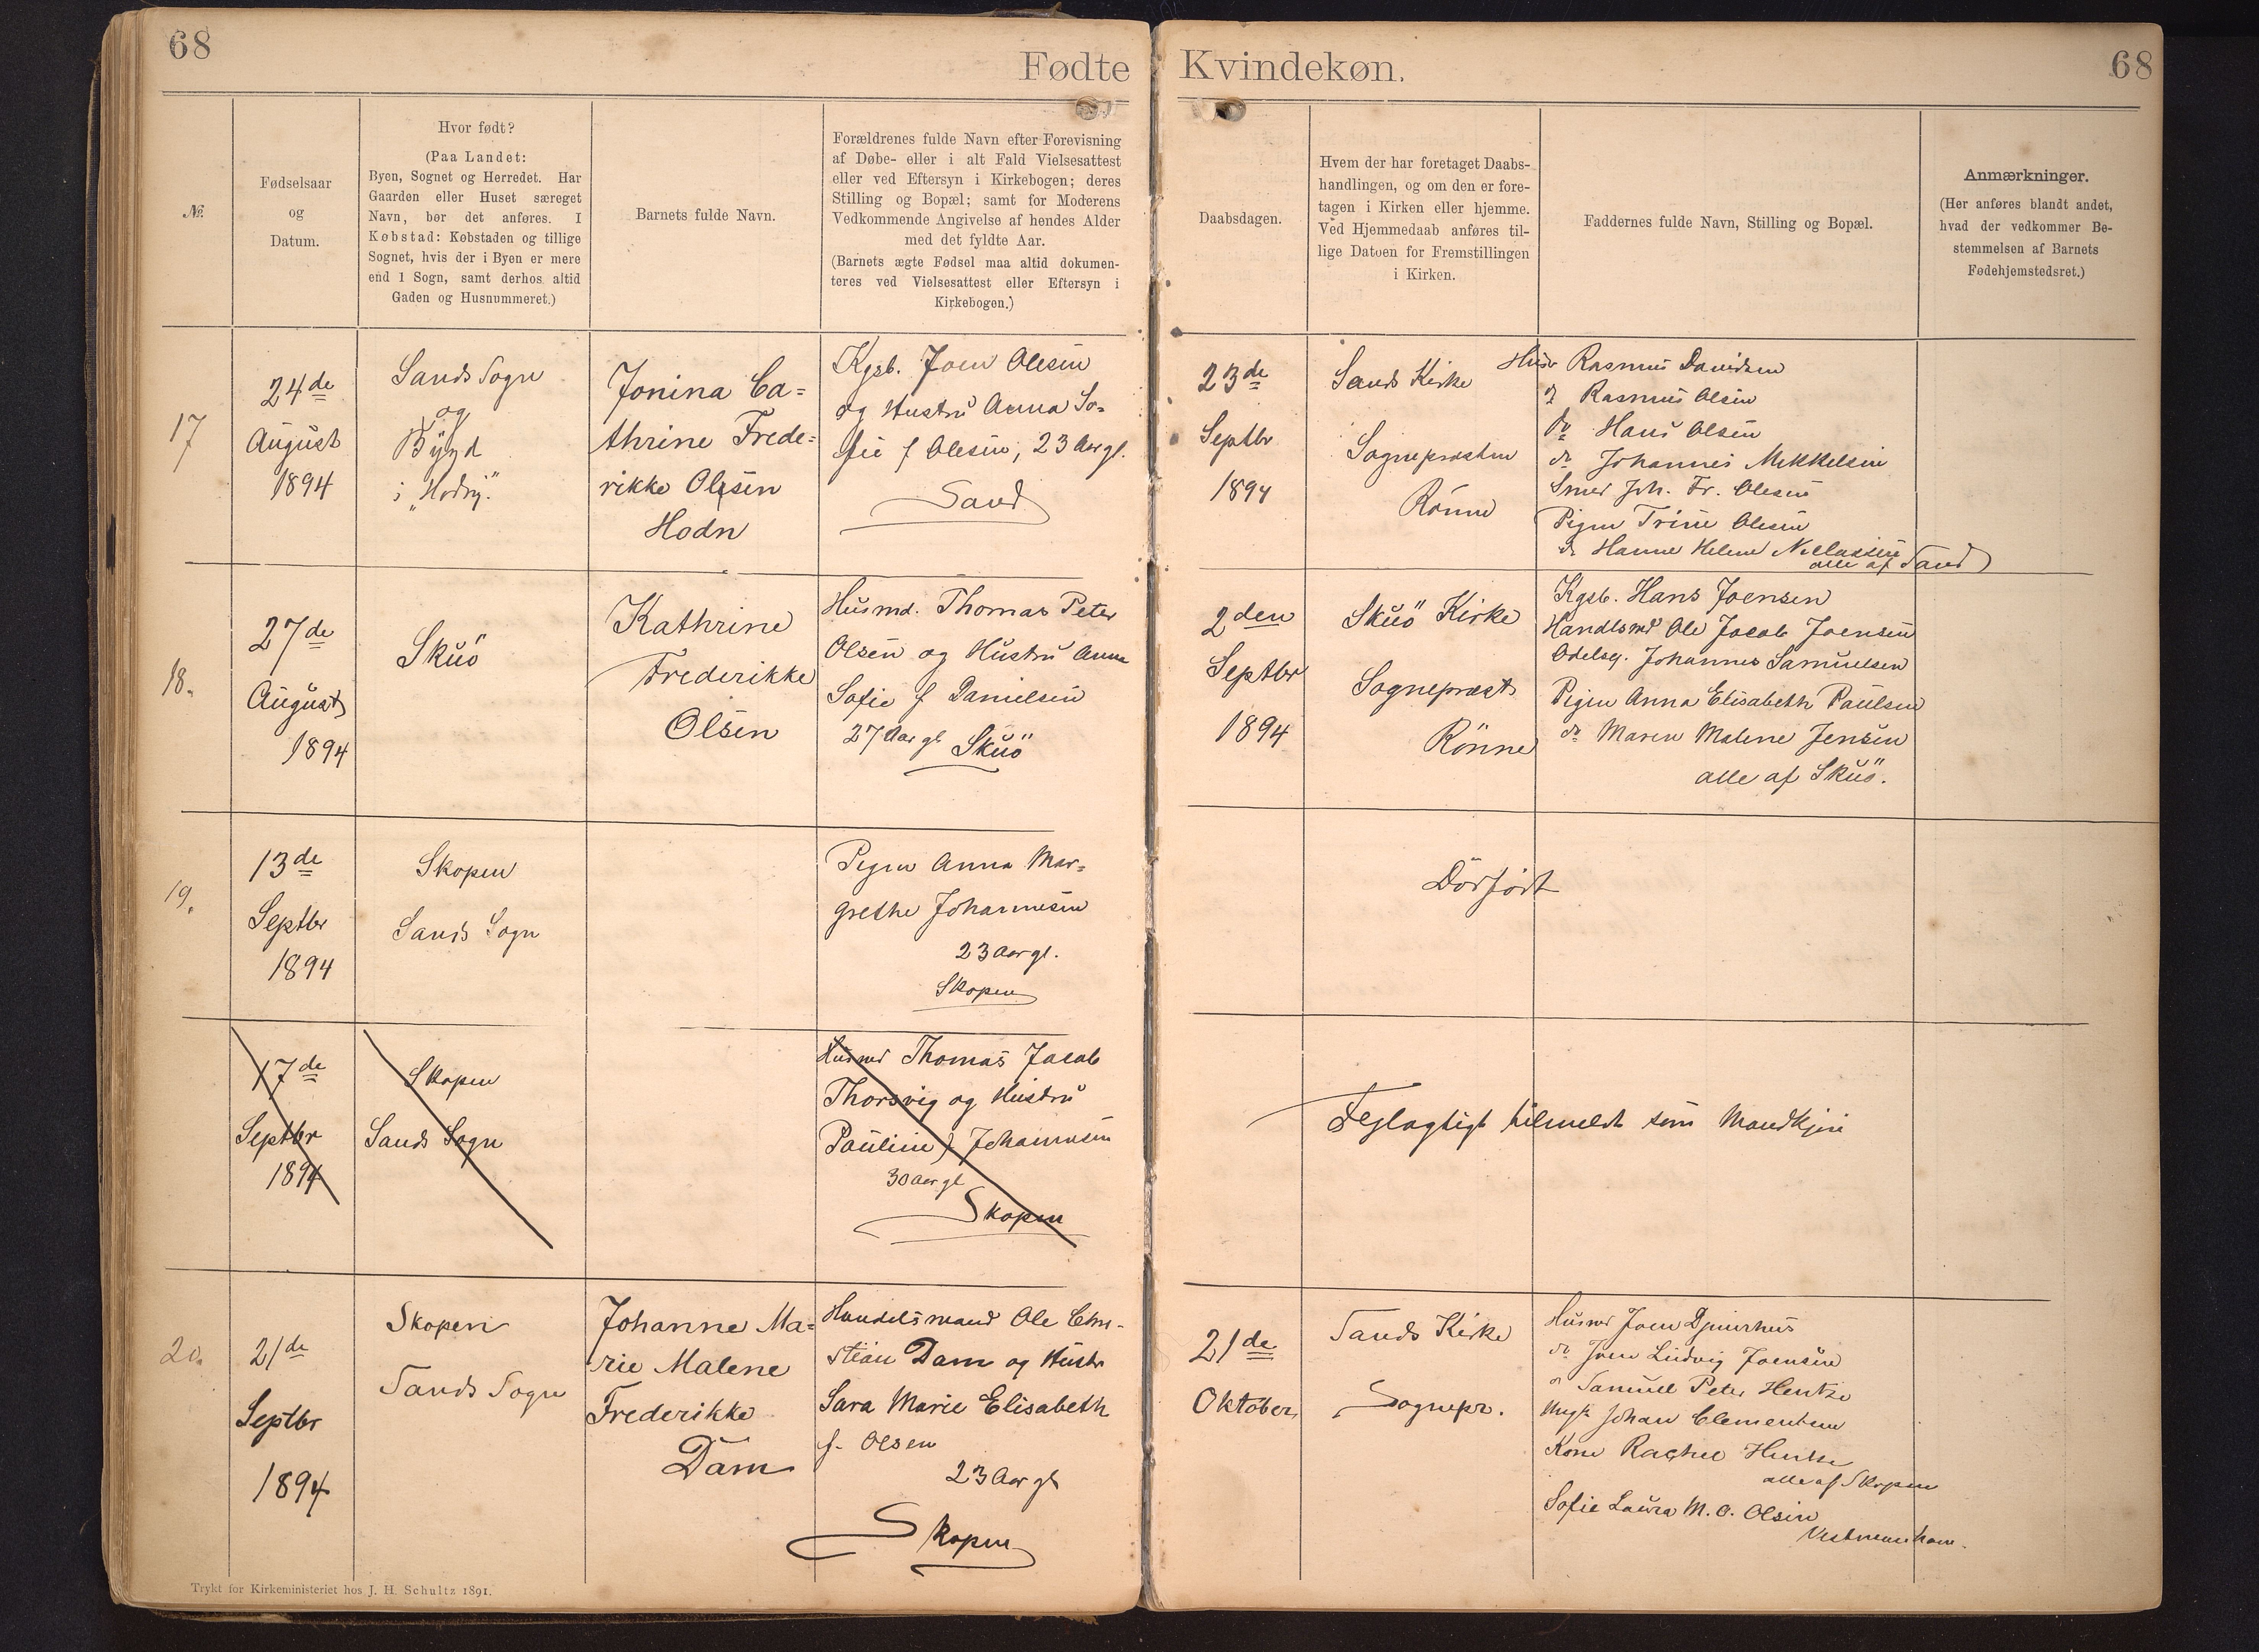 68
Fødte
Kvindekøn.
68
№
Fødselsaar
og
Datum.
Hvor født?
(Paa Landet:
Byen, Sognet og Herredet. Har
Gaarden eller Huset særeget
Navn, bør det anføres. I
Købstad: Købstaden og tillige
Sognet, hvis der i Byen er mere
end 1 Sogn, samt derhos altid
Gaden og Husnummeret.)
Barnets fulde Navn.
Forældrenes fulde Navn efter Forevisning
af Døbe- eller i alt Fald Vielsesattest
eller ved Eftersyn i Kirkebogen; deres
Stilling og Bopæl; samt for Moderens
Vedkommende Angivelse af hendes Alder
med det fyldte Aar.
(Barnets ægte Fødsel maa altid dokumen-
teres ved Vielsesattest eller Eftersyn i
Kirkebogen.)
Daabsdagen.
Hvem der har foretaget Daabs-
handlingen, og om den er fore-
tagen i Kirken eller hjemme.
Ved Hjemmedaab anføres til-
lige Datoen for Fremstillingen
i Kirken.
Faddernes fulde Navn, Stilling og Bopæl.
Anmærkninger.
(Her anføres blandt andet,
hvad der vedkommer Be-
stemmelsen af Barnets
Fødehjemstedsret.)
17
24de
August
1894
Sands Sogn
og
Bygd
i
Jonina Ca=
thrine Frede=
rikke Olesen
Hodn
Kgsb. Joen Olesen
og Hustru Anna So=
fie f Olesen, 23 Aar gl.
Sand
23de
Septbr
1894
Sands Kirke
Sognepræsten
Rönne
Rasmus Davidsen
Rasmus Olsen
do Hans Olsen
do Johannes Mikkelsen
Smed Joh. Fr. Olesen
Pigen Trine Olesen
do Hanne Helene
alle af Sand
18.
27de
August
1894
Skuö
Kathrine
Frederikke
Olsen
Husmd. Thomas Peter
Olsen og Hustru Anna
Sofie f Danielsen
27 Aar gl Skuö
2den
Septbr
1894
Skuö Kirke
Sognepræst
Rönne
Kgsb. Hans Joensen
Handlsmd Ole Jacob Joensen
Odelsg. Johannes Samuelsen
Pigen Anna Elisabeth Paulsen
do Maren Malene Jensen
alle af Skuö.
19.
13de
Septbr
1894
Skopen
Sands Sogn
Pigen Anna Mar=
grethe Johannesen
23 Aar gl.
Skopen
Dödfödt
17de
Septbr
1894
Skopen
Sands Sogn
Husmd Thomas Jacob
Thorsvig og Hustru
Pauline f Johannesen
30 Aar gl
Skopen
Fejlagtigt tilmeldt som Mandkjön
20.
21de
Septbr
1894
Skopen
Sands Sogn
Johanne Ma=
rie Malene
Frederikke
Dam
Handelsmand Ole Chri-
stian Dam og Hustr
Sara Marie Elisabeth
f. Olsen
23 Aar gl
Skopen
21de
Oktober
Sands Kirke
Sognepr.
Husmd Joen Djurhus
do Joen Ludvig Joensen
do Samuel Peter Hentze
Ungk Johan Clementsen
Kone Rachel Hentze
alle af Skopen
Sofie Laura M. O. Olsen
Vestmanhavn.
Trykt for Kirkeministeriet hos J. H. Schultz 1891.